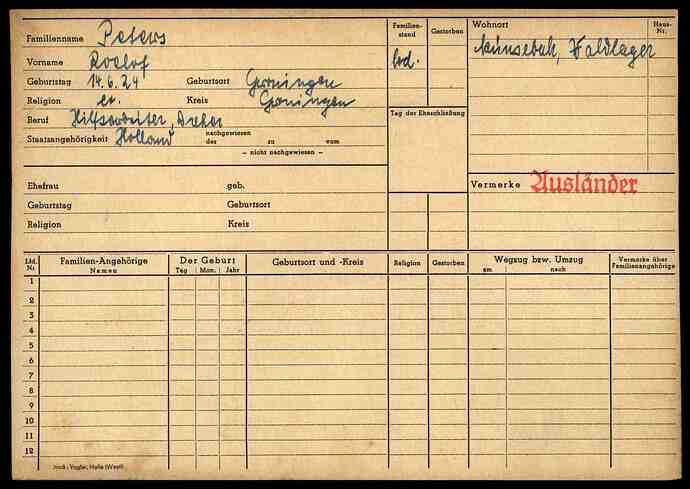 Familienname Peters
Vorname Roelof
Geburtstag 14.6.24 Geburtsort Groningen
Religion ev. Kreis Groningen
Beruf Hilfsarbeiter, Dreher
Staatsangehörigkeit Holland nachgewiesen
des zu vom
– nicht nachgewiesen –
Familien-
stand
led.
Gestorben
Tag der Eheschließung
Wohnort
Haus-
Nr.
Waldlager
Vermerke Ausländer
Ehefrau geb.
Geburtstag Geburtsort
Religion Kreis
Lfd.
Nr.
Familien-Angehörige
Namen
Der Geburt
Tag Mon. Jahr
Geburtsort und -Kreis
Religion
Gestorben
Wegzug bzw. Umzug
am nach
Vermerke über
Familienangehörige
1
2
3
4
5
6
7
8
9
10
11
12
Vogler, Halle (Westf)